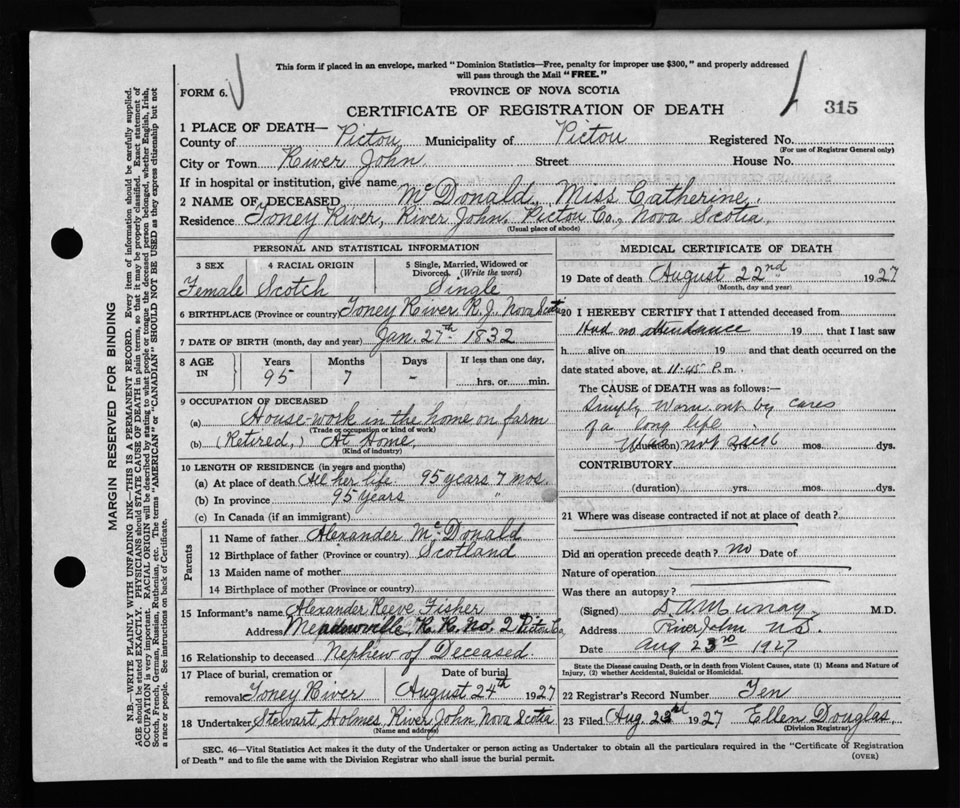 This form if placed in an envelope, marked "Dominion Statistics—Free, penalty for improper use $300," and properly addressed
will pass through the Mail "FREE."
FORM 6.
PROVINCE OF NOVA SCOTIA
CERTIFICATE OF REGISTRATION OF DEATH
315
1 PLACE OF DEATH—
County of Pictou Municipality of Pictou Registered No.
(For use of Registrar General only)
City or Town River John Street House No.
If in hospital or institution, give name
2 NAME OF DECEASED McDonald, Miss Catherine.
Residence Toney River, River John, Pictou Co., Nova Scotia,
(Usual place of abode)
PERSONAL AND STATISTICAL INFORMATION
3 SEX Female
4 RACIAL ORIGIN Scotch
5 Single, Married, Widowed or Divorced. (Write the word) Single
6 BIRTHPLACE (Province or country) Toney River R.J. Nova Scotia
7 DATE OF BIRTH (month, day and year) Jan. 27th 1832
8 AGE IN Years 95 Months 7 Days - If less than one day, hrs. or min.
9 OCCUPATION OF DECEASED
(a) House-work in the home on farm
(Trade or occupation or kind of work)
(b) (Retired,) At Home,
(Kind of industry)
10 LENGTH OF RESIDENCE (in years and months)
(a) At place of death All her life. 95 years 7 mos.
(b) In province 95 years "
(c) In Canada (if an immigrant)
Parents
11 Name of father Alexander McDonald
12 Birthplace of father (Province or country) Scotland
13 Maiden name of mother
14 Birthplace of mother (Province or country)
15 Informant's name Alexander Reeve Fisher
Address Meadowville, R.R. No. 2 Pictou Co
16 Relationship to deceased Nephew of Deceased.
17 Place of burial, cremation or removal Toney River Date of burial August 24th 1927
18 Undertaker Stewart Holmes River John Nova Scotia
(Name and address)
MEDICAL CERTIFICATE OF DEATH
19 Date of death August 22nd 1927
(Month, day and year)
20 I HEREBY CERTIFY that I attended deceased from
Had no attendance 19 that I last saw
h alive on 19 and that death occurred on the
date stated above, at 11.45 P.m.
The CAUSE of DEATH was as follows:—
Simply Worn out by cares
of a long life
Was not sick
(duration) yrs. mos. dys.
CONTRIBUTORY
(duration) yrs. mos. dys.
21 Where was disease contracted if not at place of death?
Did an operation precede death? no Date of
Nature of operation
Was there an autopsy?
(Signed) D. A. Murray M.D.
Address River John NS.
Date Aug 23rd 1927
State the Disease causing Death, or in death from Violent Causes, state (1) Means and Nature of
Injury, (2) whether Accidental, Suicidal or Homicidal.
22 Registrar's Record Number Ten
23 Filed Aug. 1927 Ellen Douglas,
(Division Registrar)
SEC. 46—Vital Statistics Act makes it the duty of the Undertaker or person acting as Undertaker to obtain all the particulars required in the "Certificate of Registration
of Death" and to file the same with the Division Registrar who shall issue the burial permit.
(OVER)
MARGIN RESERVED FOR BINDING
N.B.—WRITE PLAINLY WITH UNFADING INK—THIS IS A PERMANENT RECORD. Every item of information should be carefully supplied.
AGE should be stated EXACTLY. PHYSICIANS should STATE CAUSE OF DEATH in plain terms, so that it may be properly classified. Exact statement of
OCCUPATION is very important. RACIAL ORIGIN will be described by stating to what people or tongue the deceased person belonged, whether English, Irish,
Scotch, French, German, Russian, Ruthenian, etc. The terms "AMERICAN" or "CANADIAN" SHOULD NOT BE USED as they express citizenship but not
a race or people. See instructions on back of Certificate.